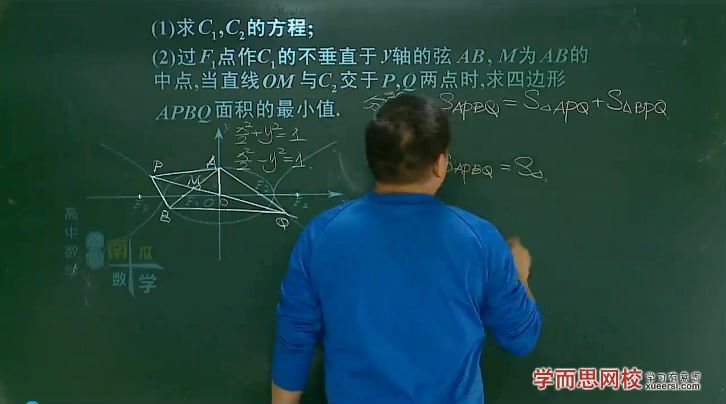 (1)求C₁,C₂的方程;
(2)过F₁点作C₁的不垂直于y轴的弦AB, M为AB的
中点,当直线OM与C₂交于P,Q两点时,求四边形
APBQ面积的最小值.
S_APBQ = S_△APQ + S_△BPQ
x²/2 + y² = 1
x²/2 - y² = 1
S_APBQ = S_△
y
P
A
M
F₃
F₁
O
F₂
F₄
B
Q
高中数学
南瓜
数学
学而思网校
学习有意思
xueersi.com